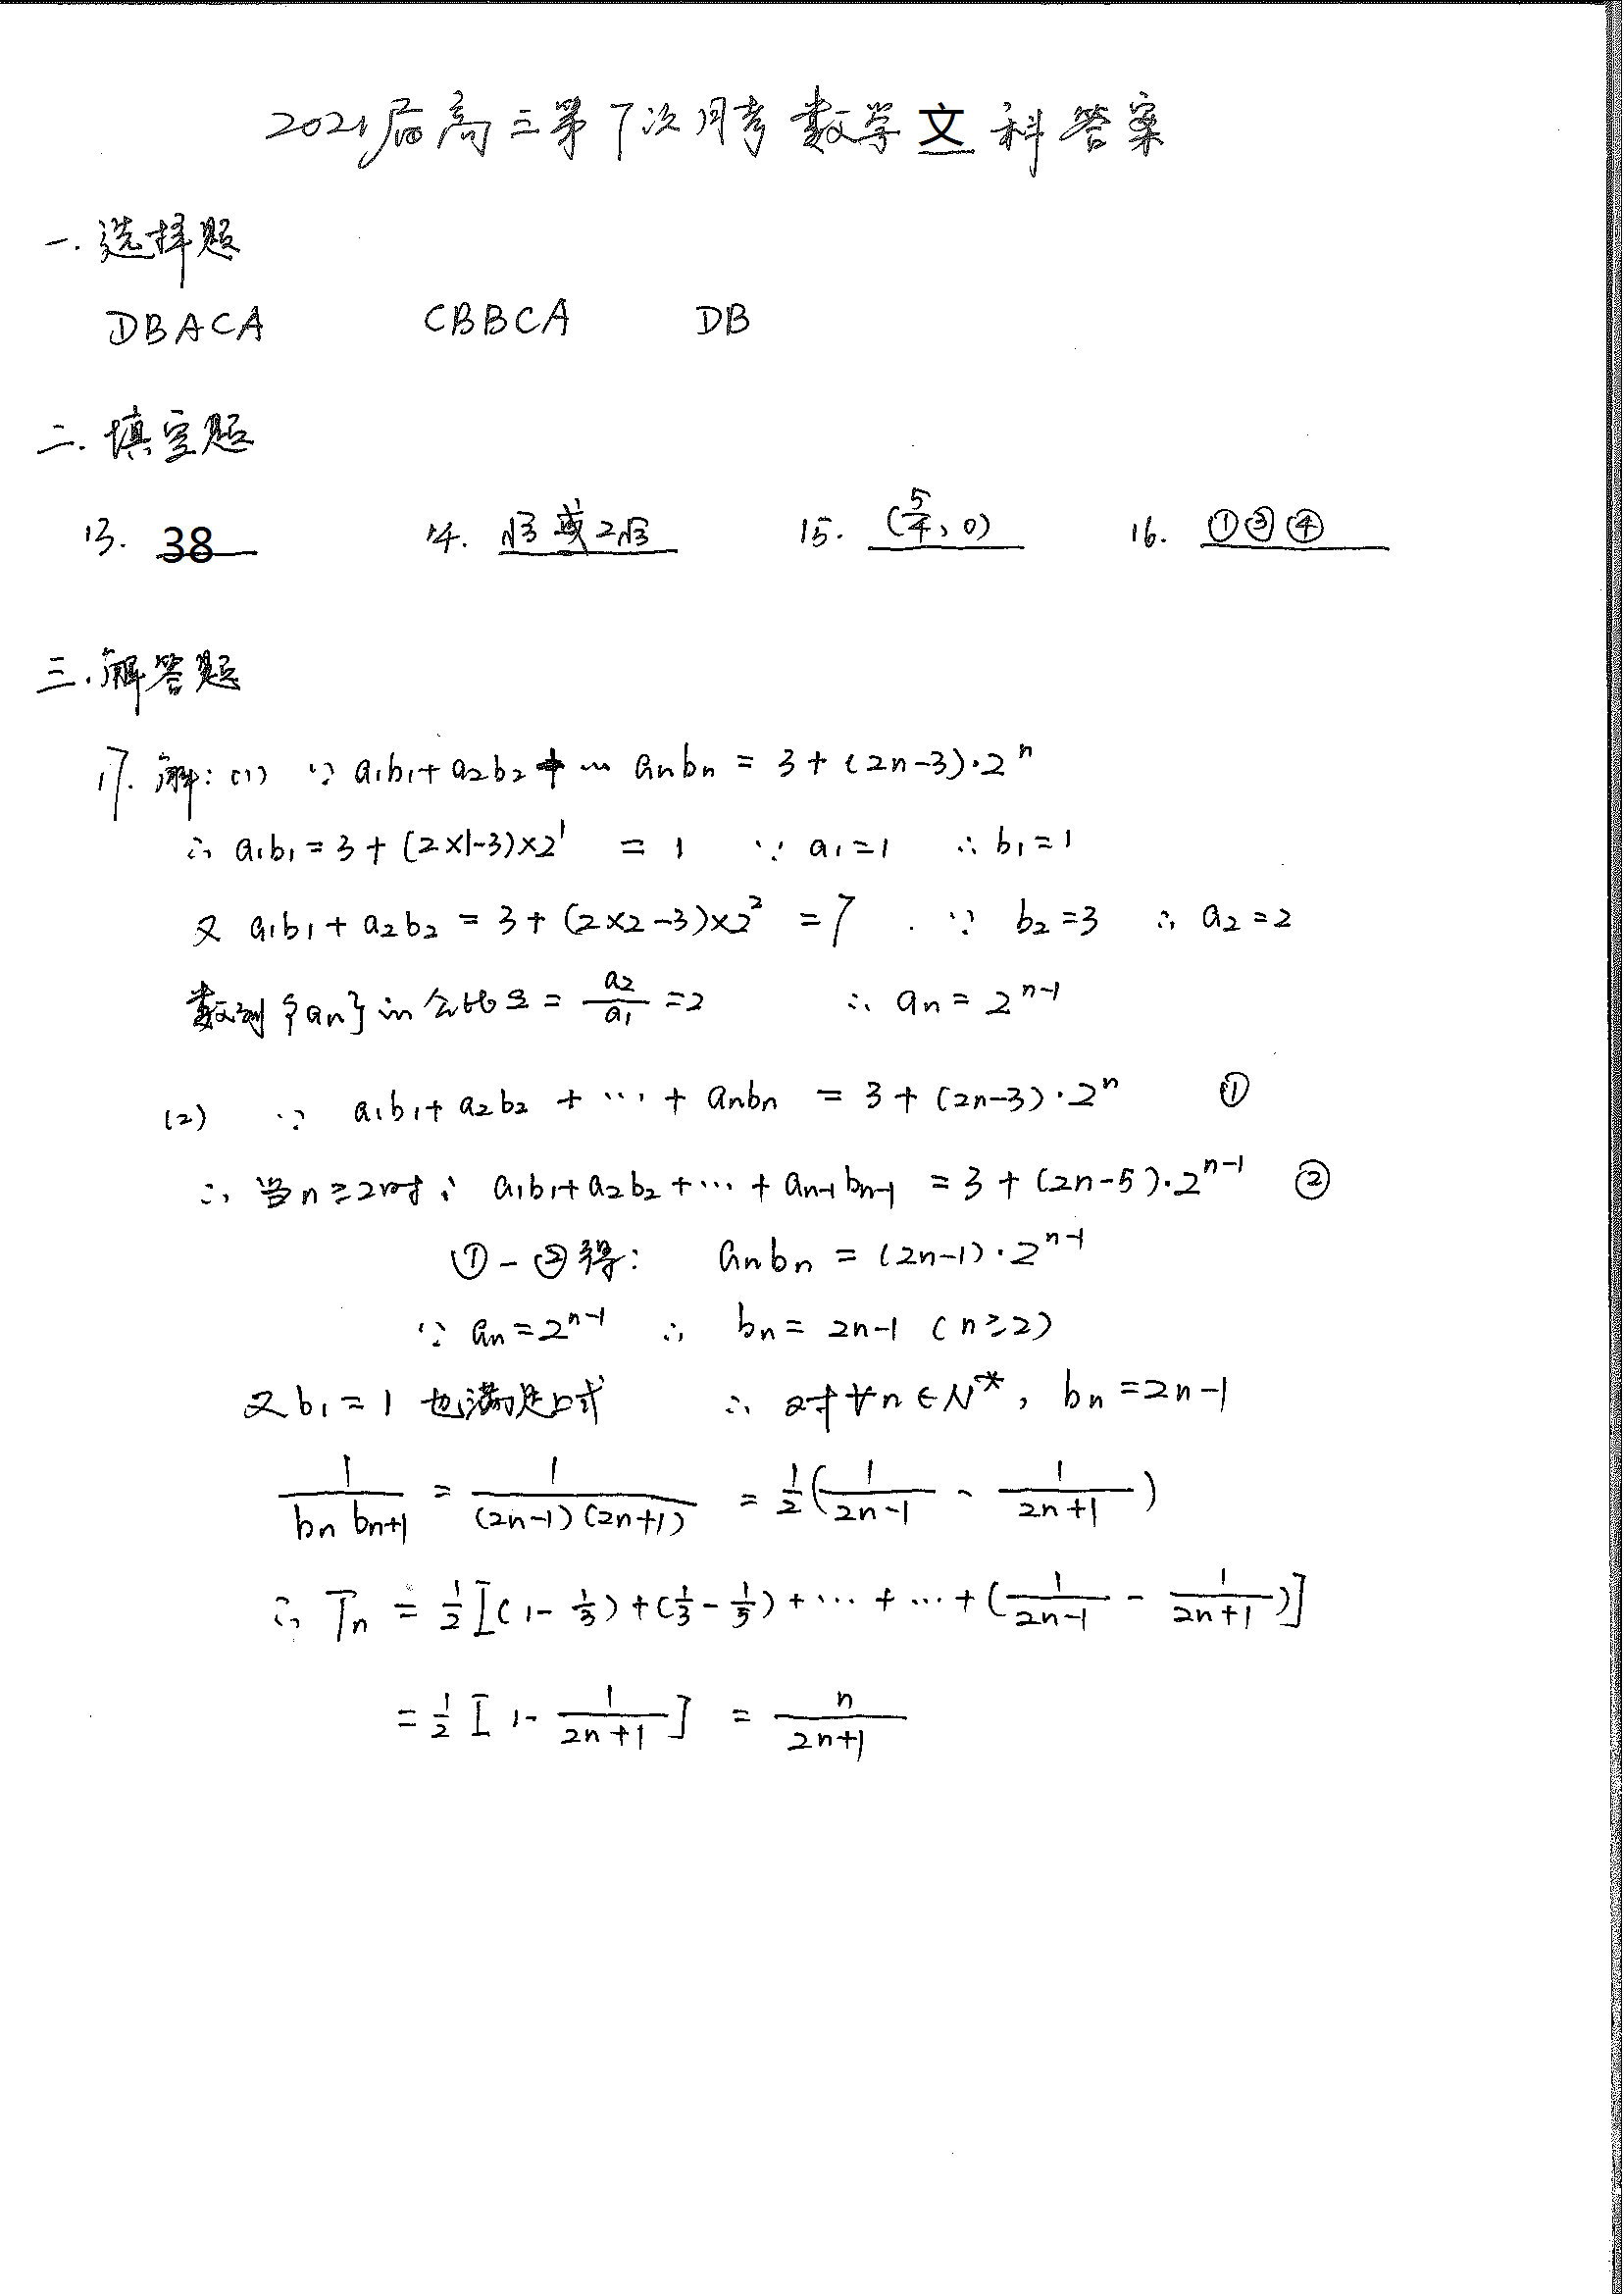 2021届高三第7次月考数学文科答案
一.选择题
DBACA CBBCA DB
二.填空题
13. 38 14. √3或2√3 15. (5/4, 0) 16. ①③④
三.解答题
17. 解:(1) ∵ a₁b₁+a₂b₂+…aₙbₙ = 3+(2n-3)·2ⁿ
∴ a₁b₁=3+(2×1-3)×2¹ = 1 ∵ a₁=1 ∴ b₁=1
又 a₁b₁+a₂b₂ = 3+(2×2-3)×2² =7 ∵ b₂=3 ∴ a₂=2
数列{aₙ}的公比q= a₂/a₁ =2 ∴ aₙ = 2ⁿ⁻¹
(2) ∵ a₁b₁+a₂b₂+…+aₙbₙ = 3+(2n-3)·2ⁿ ①
∴ 当n≥2时: a₁b₁+a₂b₂+…+aₙ₋₁bₙ₋₁ = 3+(2n-5)·2ⁿ⁻¹ ②
①-②得: aₙbₙ = (2n-1)·2ⁿ⁻¹
∵ aₙ=2ⁿ⁻¹ ∴ bₙ= 2n-1 (n≥2)
又b₁=1 也满足上式 ∴ 对∀n∈N*, bₙ=2n-1
1/(bₙbₙ₊₁) = 1/((2n-1)(2n+1)) = 1/2(1/(2n-1) - 1/(2n+1))
∴ Tₙ = 1/2[(1-1/3)+(1/3-1/5)+…+…+(1/(2n-1) - 1/(2n+1))]
= 1/2[1- 1/(2n+1)] = n/(2n+1)